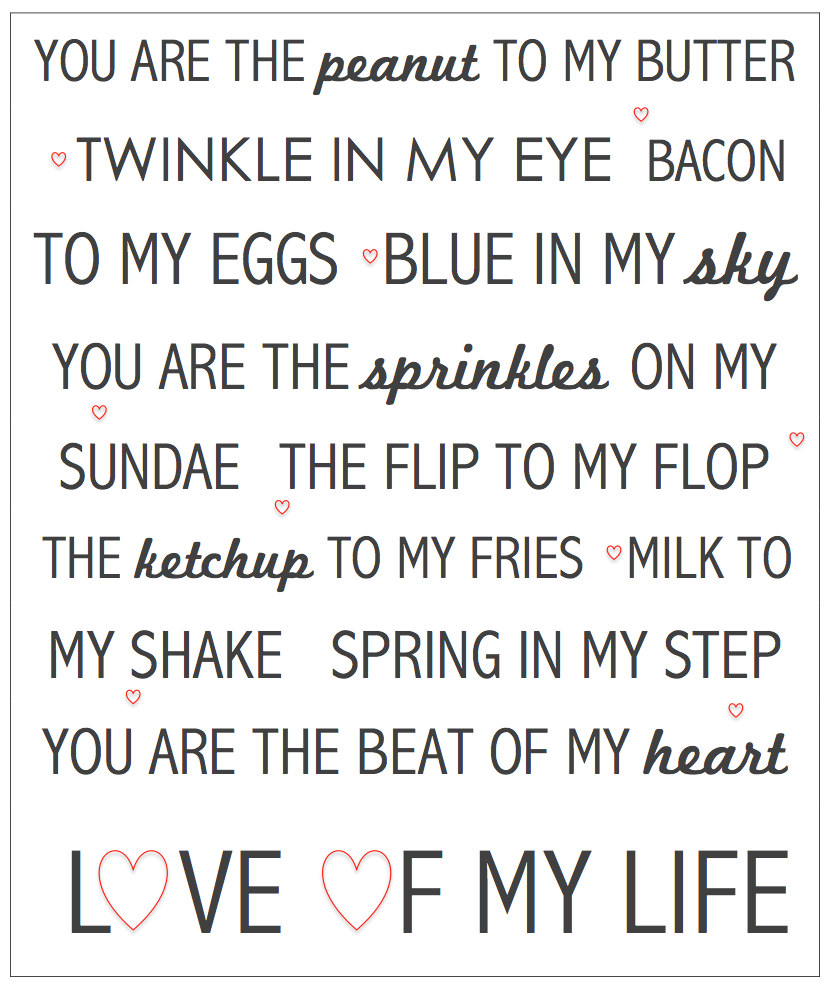 YOU ARE THE peanut TO MY BUTTER
TWINKLE IN MY EYE BACON
TO MY EGGS BLUE IN MY sky
YOU ARE THE sprinkles ON MY
SUNDAE THE FLIP TO MY FLOP
THE ketchup TO MY FRIES MILK TO
MY SHAKE SPRING IN MY STEP
YOU ARE THE BEAT OF MY heart
L♡VE ♡F MY LIFE